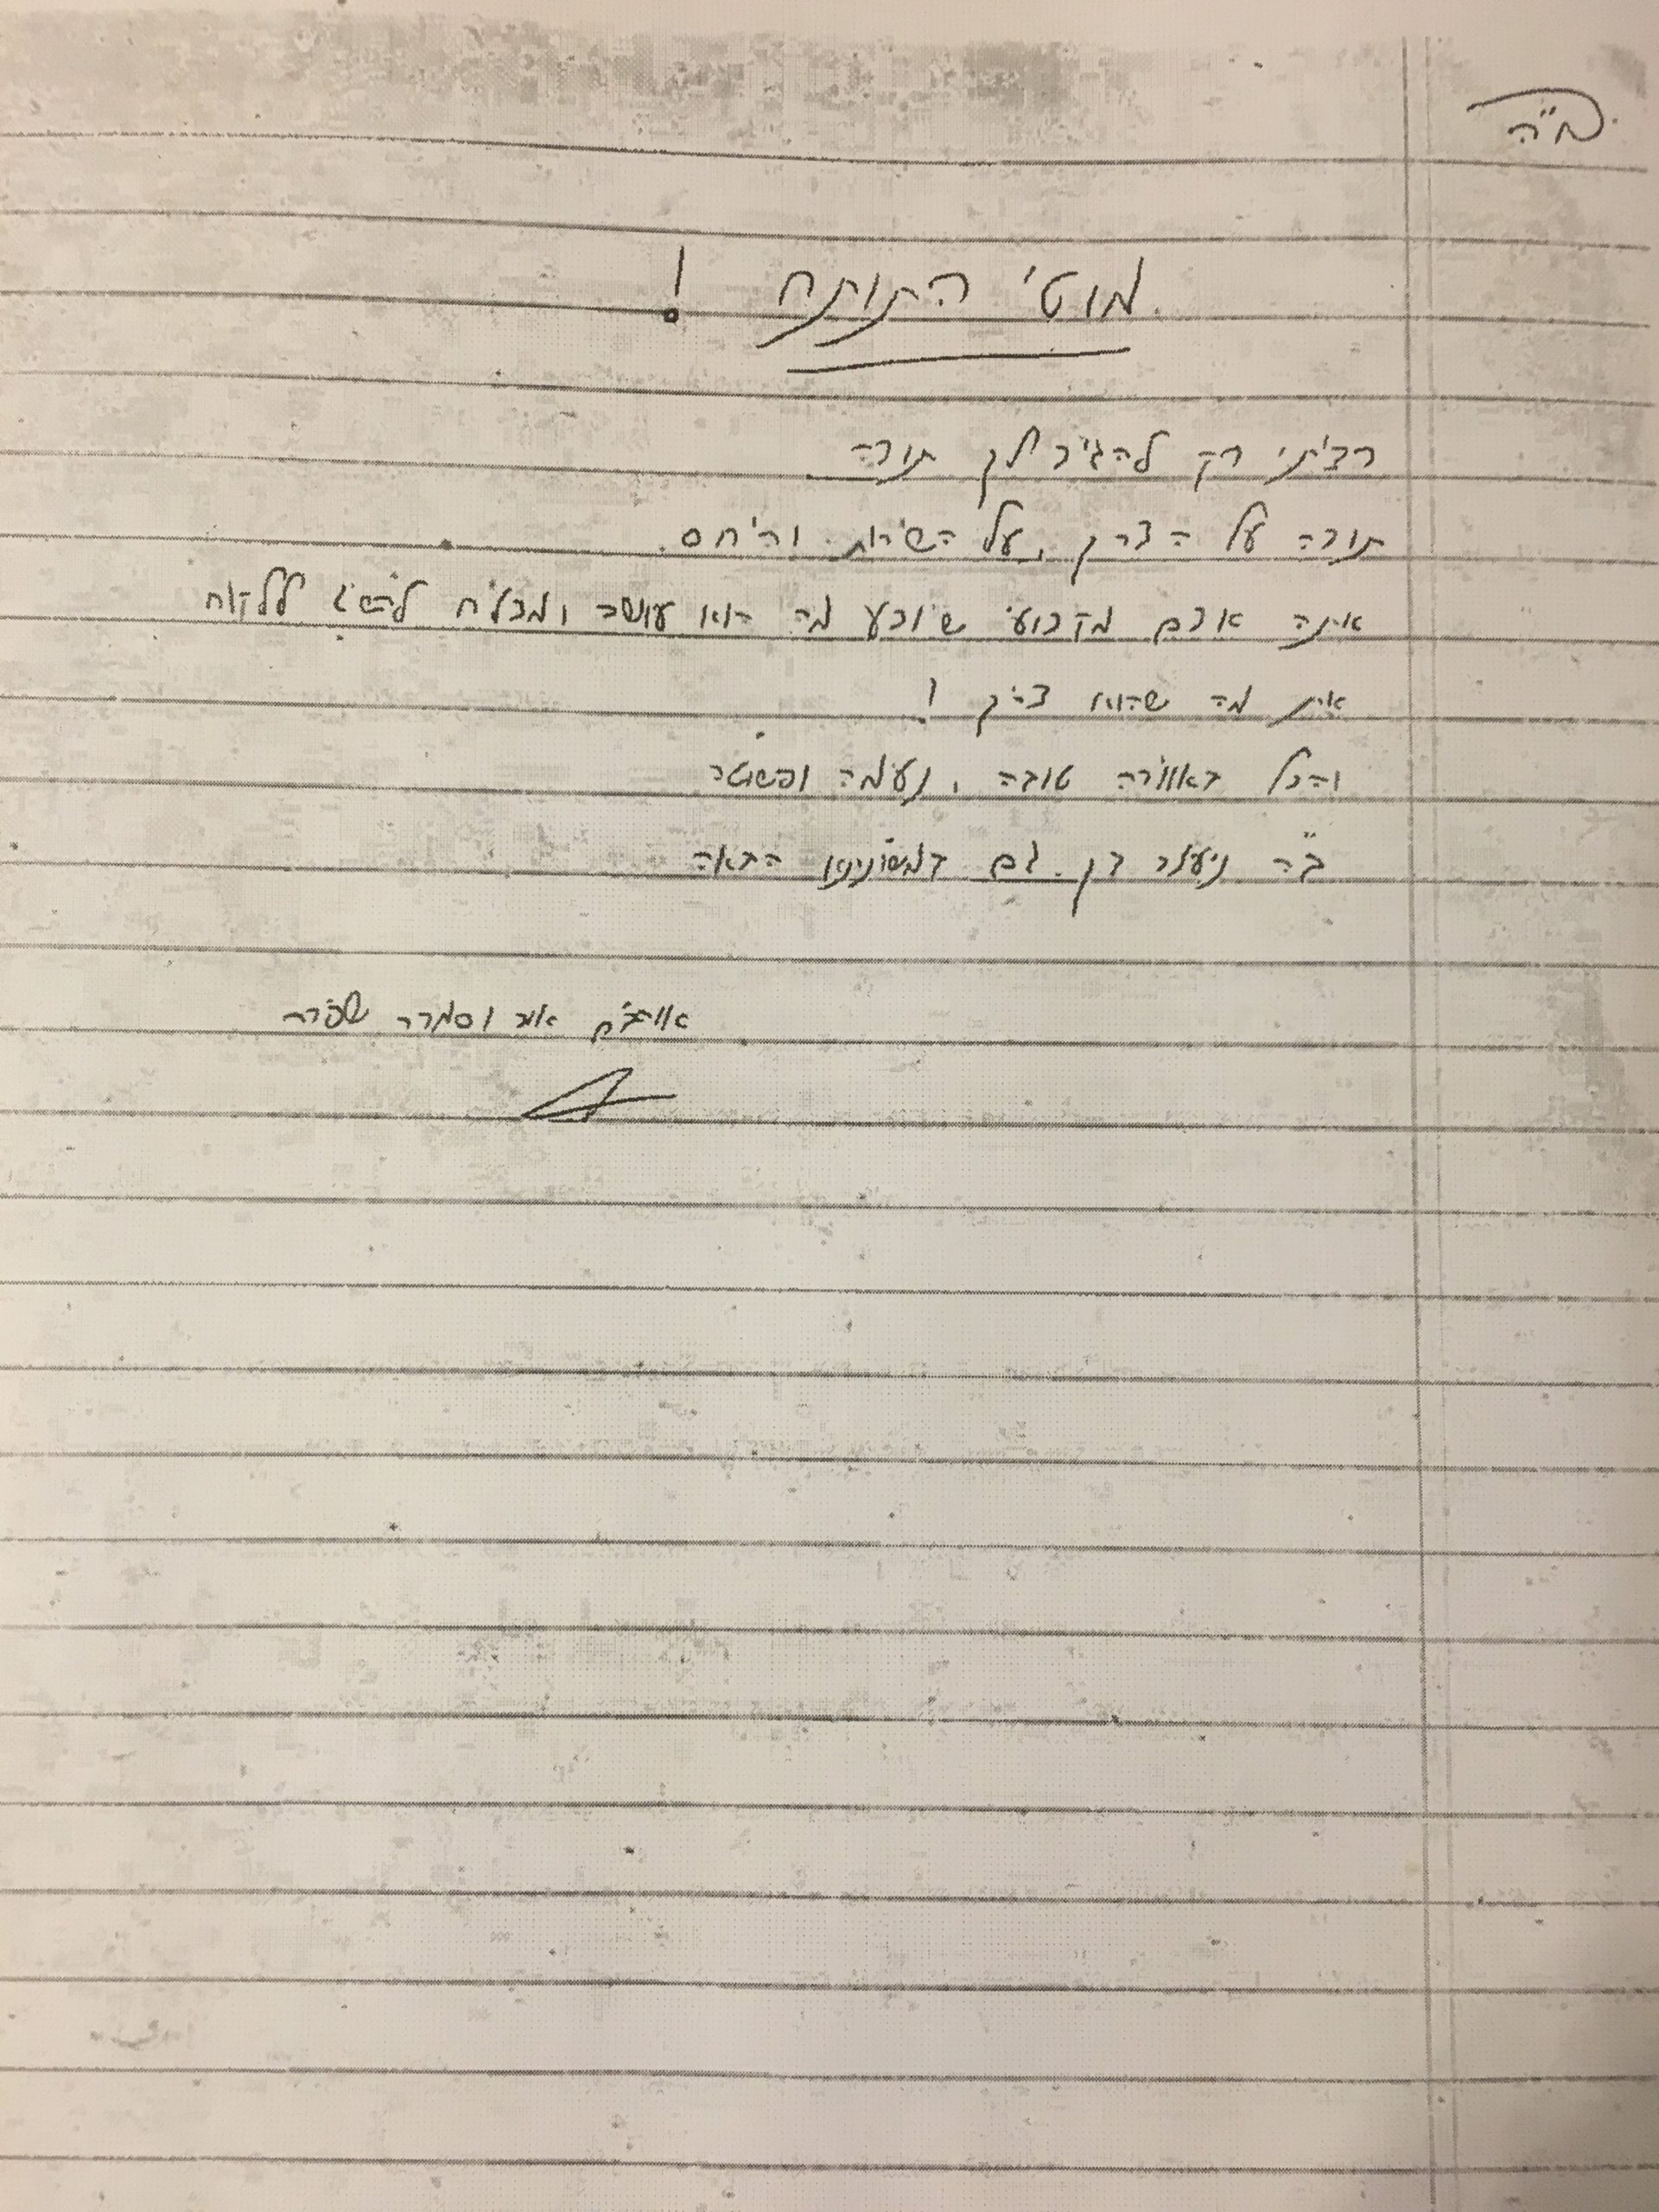 ב"ה
מוטי התותח !
רציתי רק להגיד לך תודה
תודה על הצדק, על השירות והיחס.
אתה אדם מקצועי שיודע מה הוא עושה ומצליח להשיג ללקוח
את מה שהוא צריך !
והכל באווירה טובה, נעימה ופשוטה
ב"ה ניעזר בך גם במשכנתא הבאה
אוהבים אור וסמדר שפירה